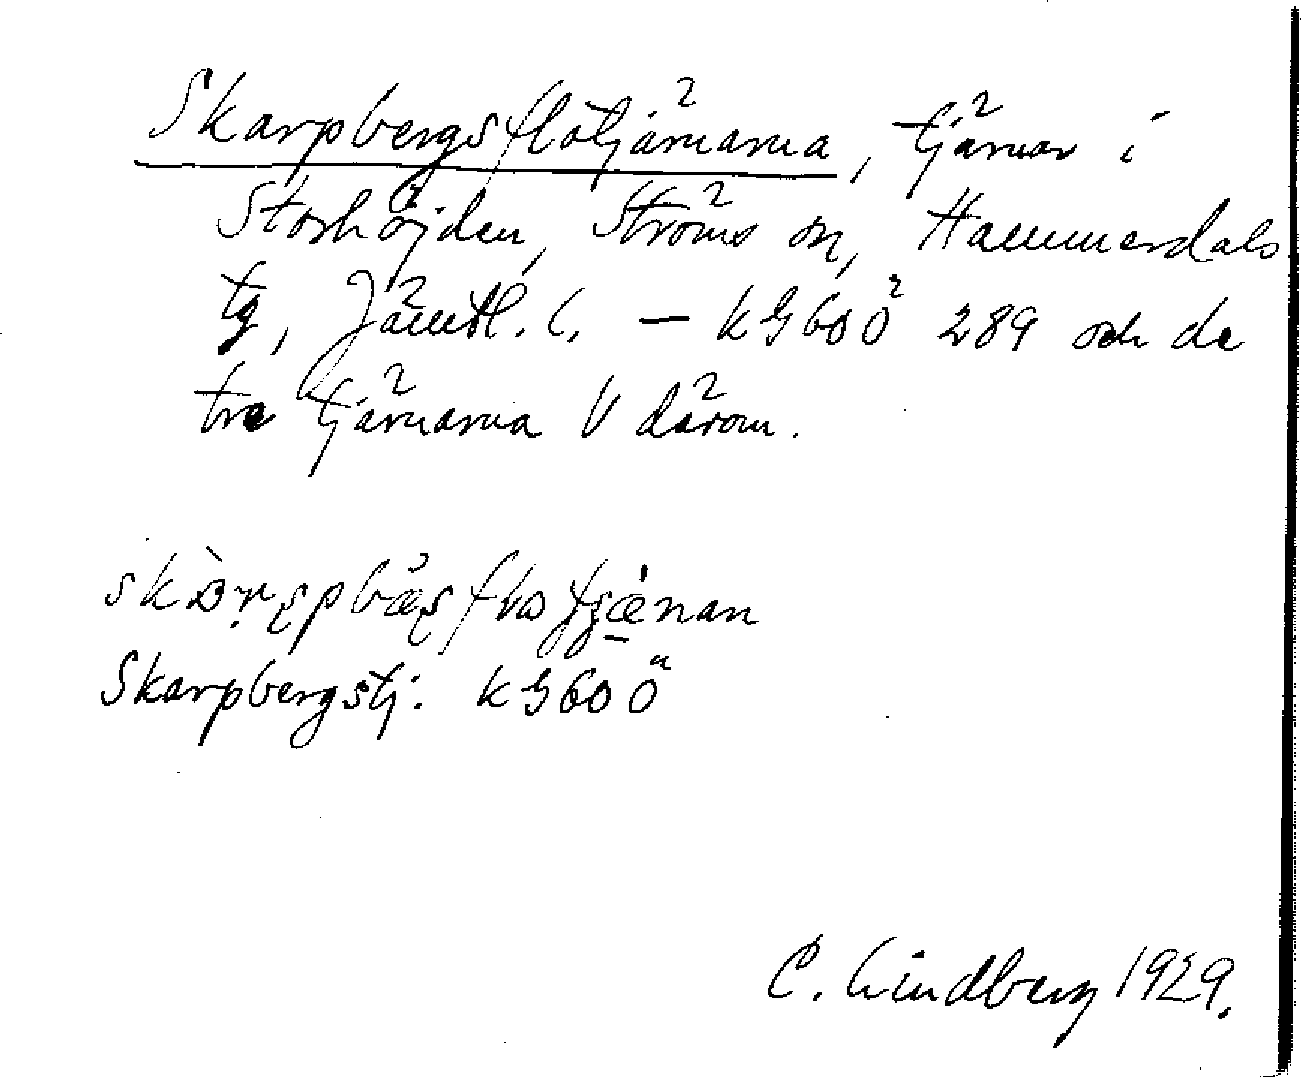 Skarpbergsflotjärnarna, tjärnar i
Storhöjden, Ströms sn, Hammerdals
tg, Jämtl. l. — kG600 289 och de
tre tjärnarna V därom.
Skarpbergstj: kG60Ö
C. Lindberg 1929.